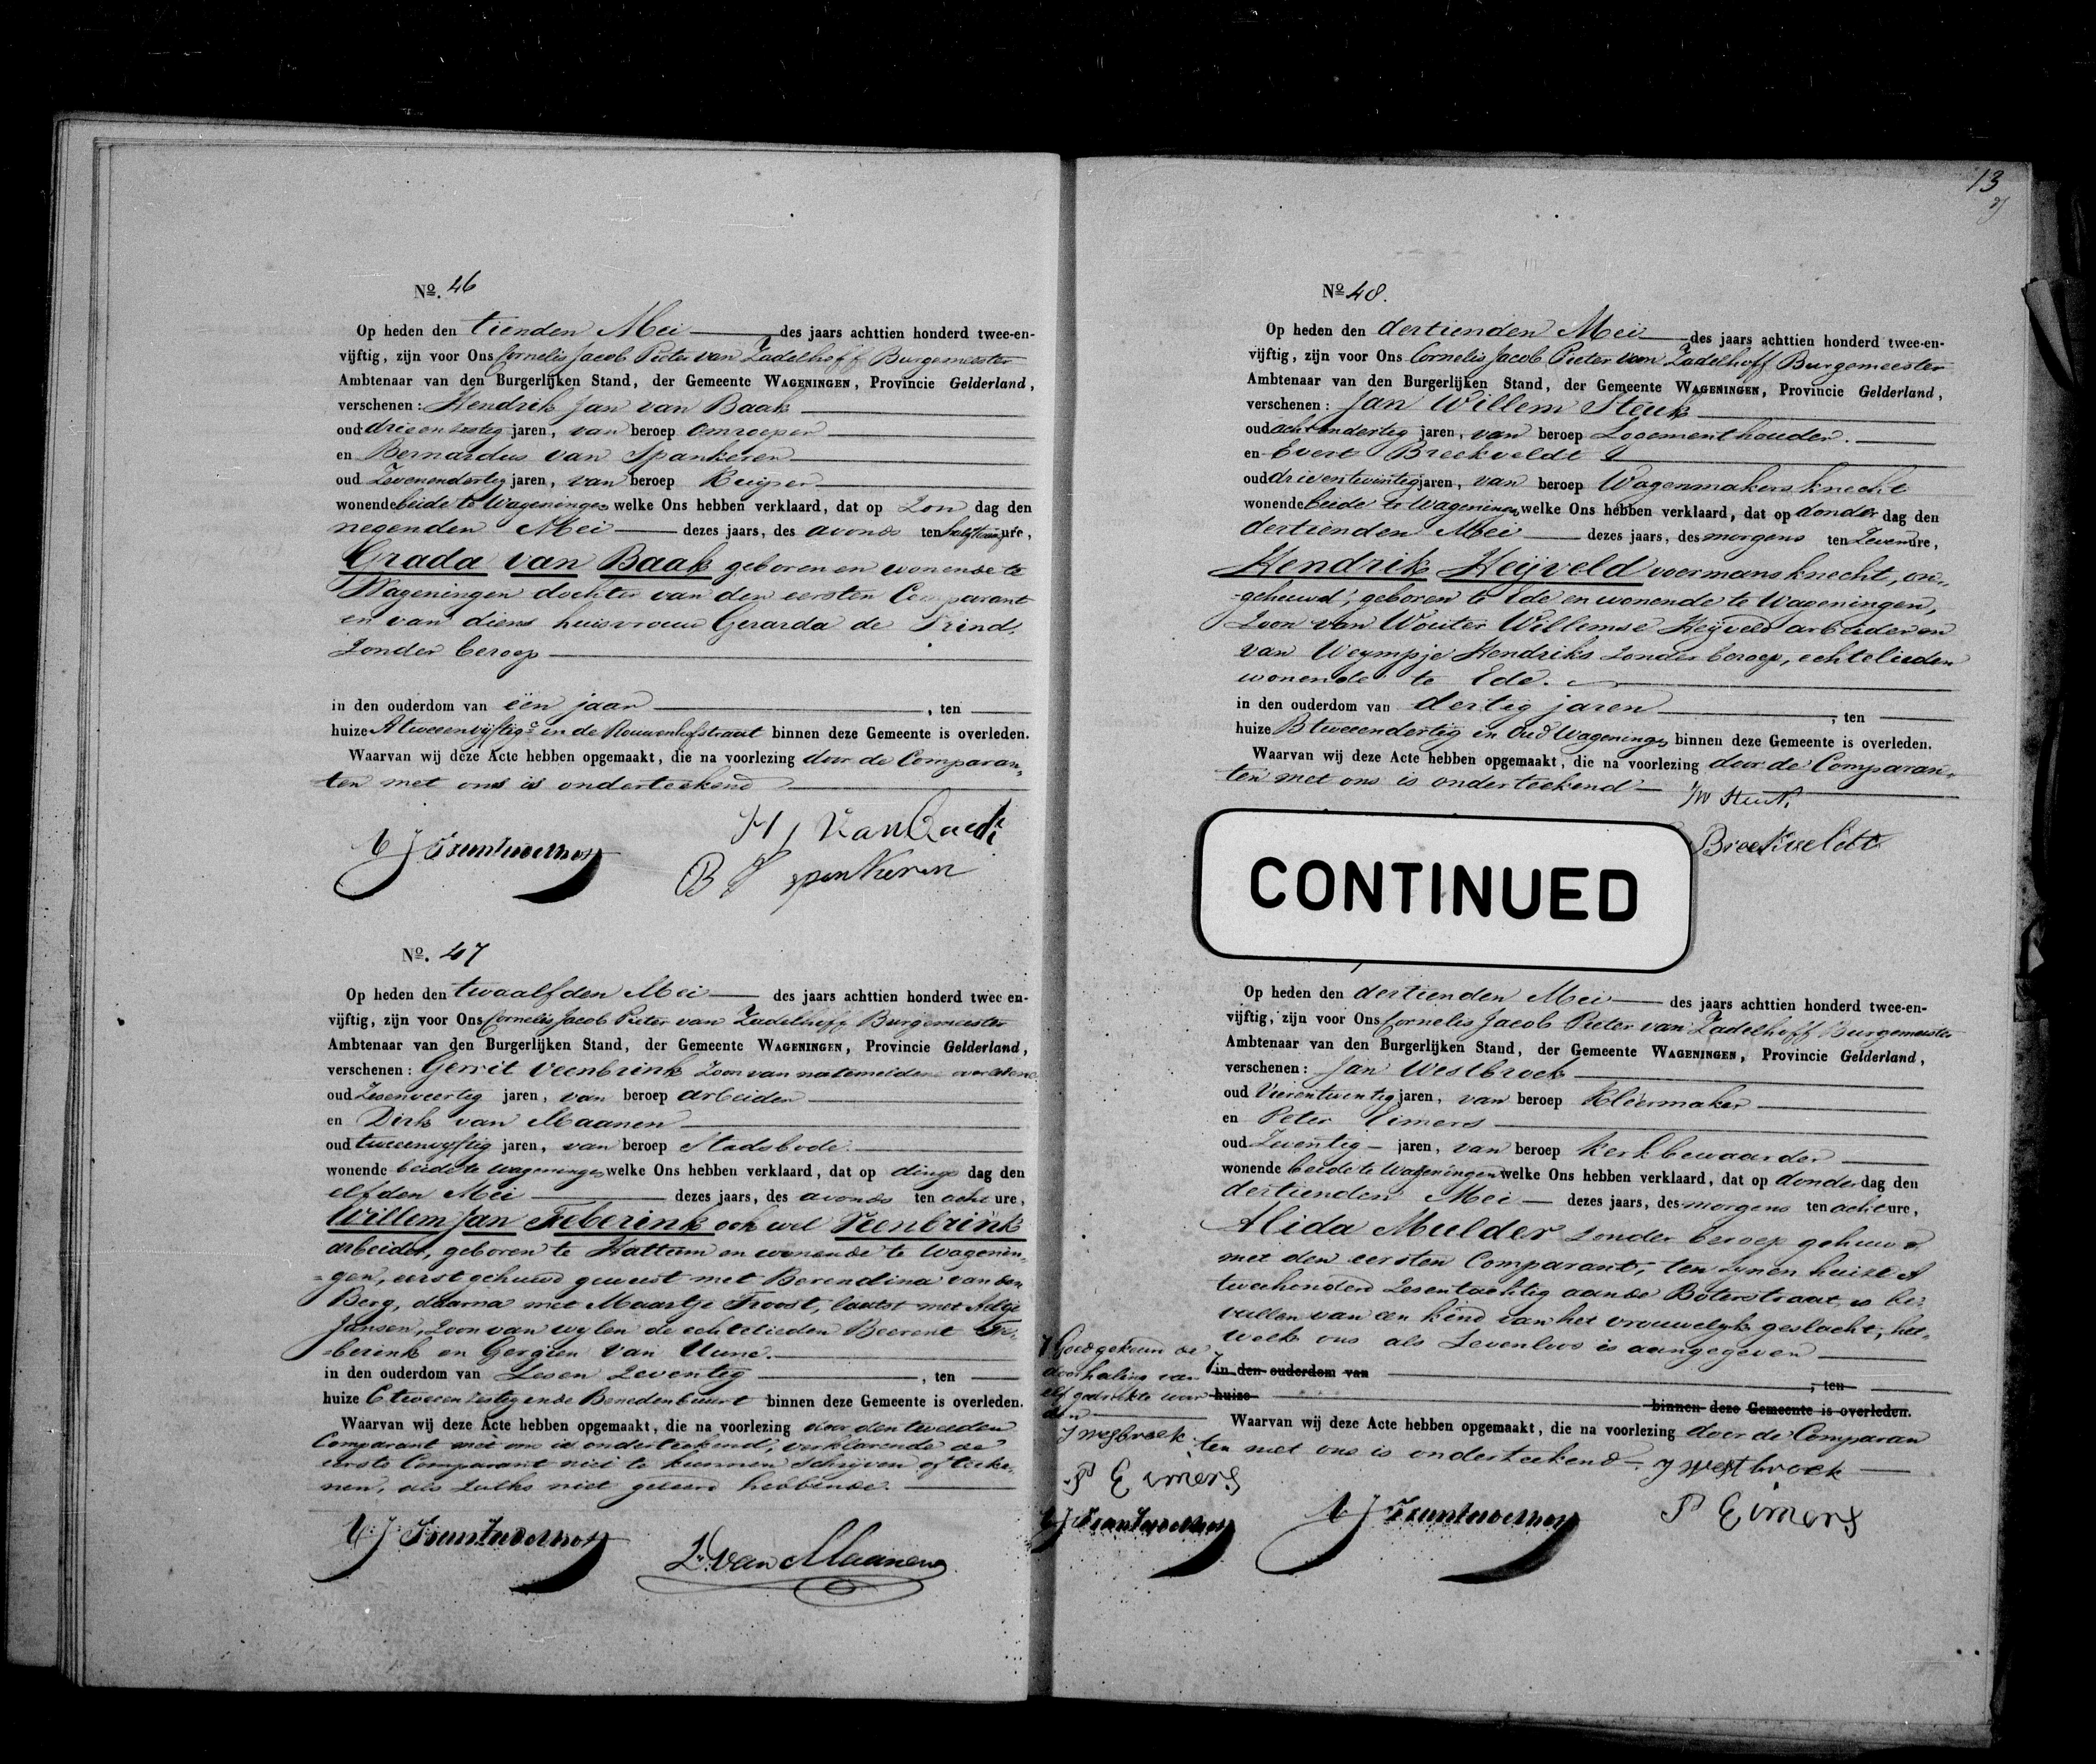 No. 46
Op heden den tienden Mei des jaars achttien honderd twee-en-
vijftig, zijn voor Ons Cornelis Jacob Pieter van Zadelhoff Burgemeester
Ambtenaar van den Burgerlijken Stand, der Gemeente WAGENINGEN, Provincie Gelderland,
verschenen: Hendrik Jan van Baak
oud drieenzestig jaren, van beroep Omroeper
en Bernardus van Spankeren
oud Zevenendertig jaren, van beroep Kuiper
wonende beide te Wageningen welke Ons hebben verklaard, dat op Zon dag den
negenden Mei dezes jaars, des avonds ten ure,
Grada van Baak geboren en wonende te
Wageningen dochter van den eersten Comparant
en van diens huisvrouw Gerarda de
Zonder beroep
in den ouderdom van één jaar, ten
huize A tweeenvijftig c in de Rouwenhofstraat binnen deze Gemeente is overleden.
Waarvan wij deze Acte hebben opgemaakt, die na voorlezing door de Comparan-
ten met ons is onderteekend
H J van Baak
B V Spankeren
No. 47
Op heden den twaalfden Mei des jaars achttien honderd twee en-
vijftig, zijn voor Ons Cornelis Jacob Pieter van Zadelhoff Burgemeester
Ambtenaar van den Burgerlijken Stand, der Gemeente WAGENINGEN, Provincie Gelderland,
verschenen: Gerrit Veenbrink Zoon van natemelden overledene
oud Zesenveertig jaren, van beroep arbeider
en Dirk van Maanen
oud tweeenvyftig jaren, van beroep Stadsbode
wonende beide te Wageningen welke Ons hebben verklaard, dat op dings dag den
elfden Mei dezes jaars, des avonds ten acht ure,
Willem Jan ook wel Veenbrink
arbeider, geboren te Hattem en wonende te Wagenin-
=gen, eerst gehuwd geweest met Berendina van den
Berg, daarna met Maartje Troost, laatst met
Jansen, Zoon van wylen de echtelieden Beerent
=berink en van
in den ouderdom van Zesen Zeventig, ten
huize C tweeen zestig in de Benedenbuurt binnen deze Gemeente is overleden.
Waarvan wij deze Acte hebben opgemaakt, die na voorlezing door den tweeden
Comparant met ons is onderteekend, verklarende de
eerste Comparant niet te kunnen schrijven of teeke-
nen, als zulks niet geleerd hebbende.
D. van Maanen
13
No 48.
Op heden den dertienden Mei des jaars achttien honderd twee-en-
vijftig, zijn voor Ons Cornelis Jacob Pieter van Zadelhoff Burgemeester
Ambtenaar van den Burgerlijken Stand, der Gemeente WAGENINGEN, Provincie Gelderland,
verschenen: Jan Willem Steuk
oud achtendertig jaren, van beroep Logementhouder.
en Evert Breekveldt
oud drieentwintig jaren, van beroep Wagenmakersknecht
wonende beide te Wageningen welke Ons hebben verklaard, dat op donder dag den
dertienden Mei dezes jaars, des morgens ten Zeven ure,
Hendrik Heijveld voermansknecht, on-
-gehuwd, geboren te Ede en wonende te Wageningen,
Zoon van Wouter Willemse Heijveld arbeider en
van Weympje Hendriks Zonder beroep, echtelieden
wonende te Ede.
in den ouderdom van dertig jaren, ten
huize B tweeendertig in Oud Wageningen binnen deze Gemeente is overleden.
Waarvan wij deze Acte hebben opgemaakt, die na voorlezing door de Comparan-
ten met ons is onderteekend
JW Steuk
Breekveldt
CONTINUED
Op heden den dertienden Mei des jaars achttien honderd twee-en-
vijftig, zijn voor Ons Cornelis Jacob Pieter van Zadelhoff Burgemeester
Ambtenaar van den Burgerlijken Stand, der Gemeente WAGENINGEN, Provincie Gelderland,
verschenen: Jan Westbroek
oud Vierentwentig jaren, van beroep Kleermaker
en Peter Eimers
oud Zeventig jaren, van beroep kerkbewaarder
wonende beide te Wageningen welke Ons hebben verklaard, dat op donder dag den
dertienden Mei dezes jaars, des morgens ten acht ure,
Alida Mulder Zonder beroep gehuwd
met den eersten Comparant, ten zynen huize A
tweehonderd Zesentachtig aan de Boterstraat, is be-
vallen van een kind van het vrouwelyk geslacht, het-
welk ons als Levenloos is aangegeven
Goedgekeurd de
doorhaling van
elf gedrukte woor
den
J Westbroek
P Eimers
in den ouderdom van, ten
huize binnen deze Gemeente is overleden.
Waarvan wij deze Acte hebben opgemaakt, die na voorlezing door de Comparan
ten met ons is onderteekend
J Westbroek
P Eimers